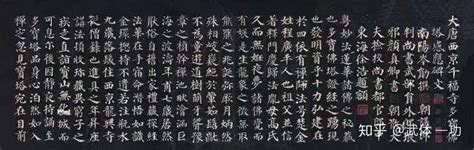 大唐西京千福寺多寶佛
塔感應碑文
南陽岑勛撰 朝議郎
判尚書武部員外郎琅
邪顏真卿書 朝散
大夫撿校尚書都官郎中
東海徐浩題額
粵妙法蓮華諸佛之秘藏
也多寶佛塔證經之踴現
也發明資乎十力弘建在
於四依有禪師法号楚金
姓程廣平人也祖父並信
著釋門慶歸法胤母高氏
久而無姙夜夢諸佛覺而
有娠是生龍象之徵無取
熊羆之兆誕弥厥月炳然
殊相岐嶷絕於葷茹髫齔
不為童遊道樹萌牙聳豫
章之楨幹禪池畎澮涵巨
海之波濤年甫七歲居然
厭俗自誓出家禮藏探經
法華在手宿命潛悟如識
金環揔持不遺若注瓶水
九歲落髮住西京龍興寺
從僧籙也進具之年昇座
講法頓收珍藏異窮子之
疾走直詣寶山無化城而
可息尒後因靜夜持誦至
多寶塔品身心泊然如入
禪定忽見寶塔宛在目前
知乎 @武体一功